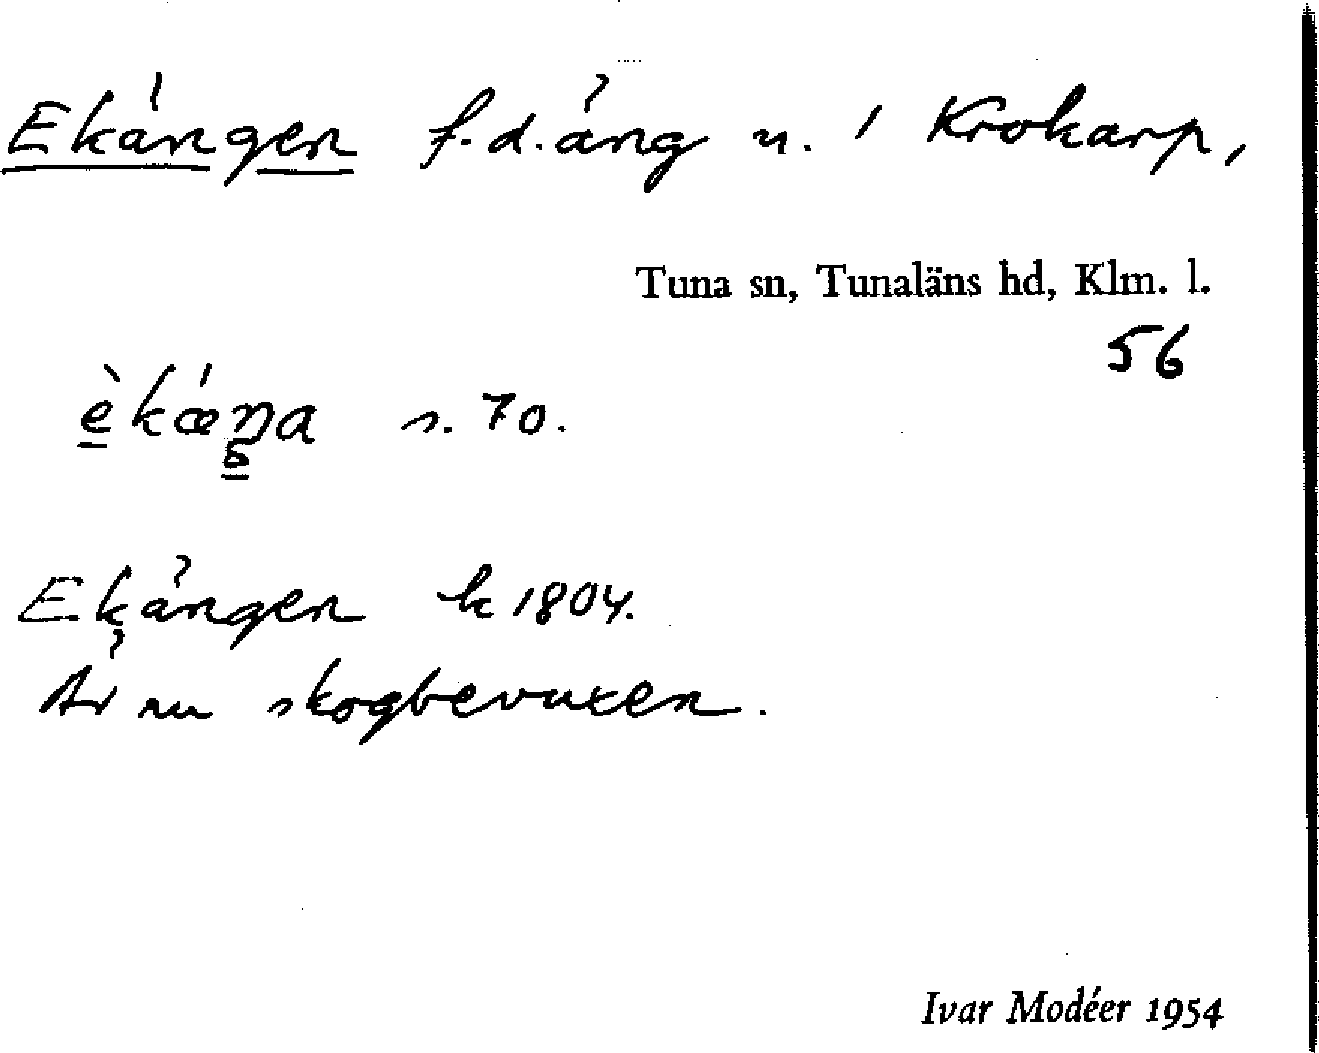 Ekängen f.d. äng u. 1 Krokarp,
Tuna sn, Tunaläns hd, Klm. l.
56
s. 70.
Ekängen k 1804.
Är nu skogbevuxen.
Ivar Modéer 1954